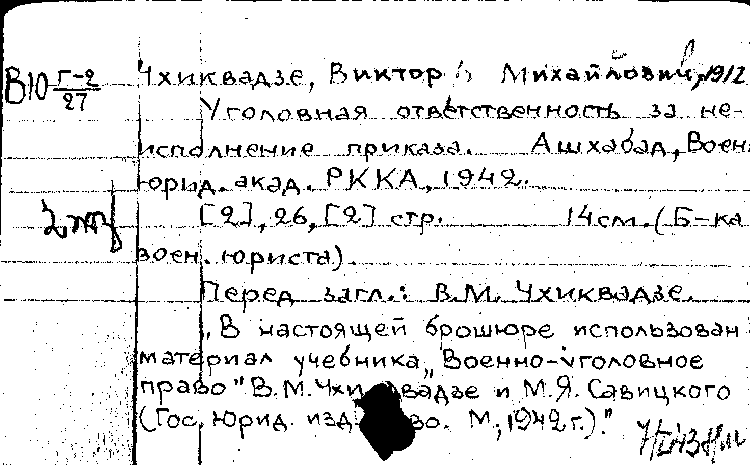 В10 Г-2/27
Чхиквадзе, Виктор Михайлович, 1912
Уголовная ответственность за не-
исполнение приказа. Ашхабад, Воен.
юрид. акад. РККА, 1942.
[2], 26, [2] стр. 14см. (Б-ка
2 экз
воен. юриста).
Перед загл.: В.М. Чхиквадзе.
„В настоящей брошюре использован
материал учебника „Военно-уголовное
право" В.М. Чхиквадзе и М.Я. Савицкого
(Гос. юрид. изд во. М., 1942 г.)."